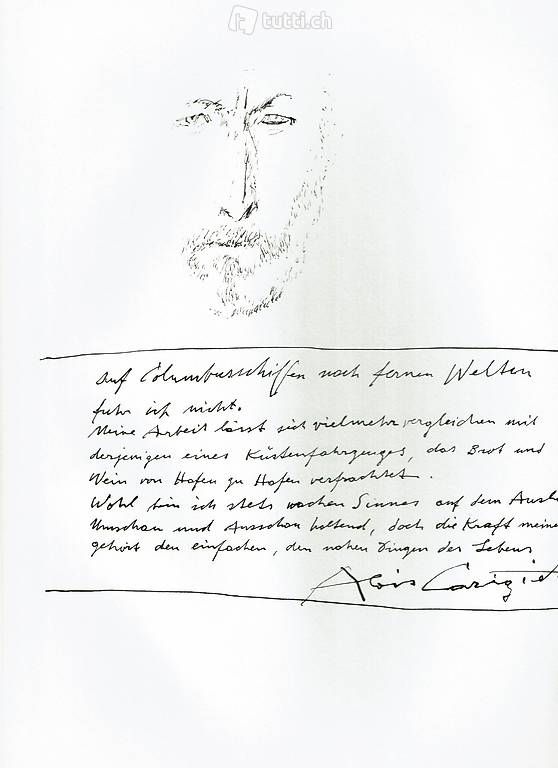 tutti.ch
auf Columbusschiffen nach fernen Welten
fuhr ich nicht.
Meine Arbeit lässt sich vielmehr vergleichen mit
derjenigen eines Küstenfahrzeuges, das Brot und
Wein von Hafen zu Hafen verfrachtet.
Wohl bin ich stets wachen Sinnes auf dem Ausl
Umschau und Ausschau haltend, doch die Kraft meine
gehört den einfachen, den nahen Dingen des Lebens
Alois Carigiet